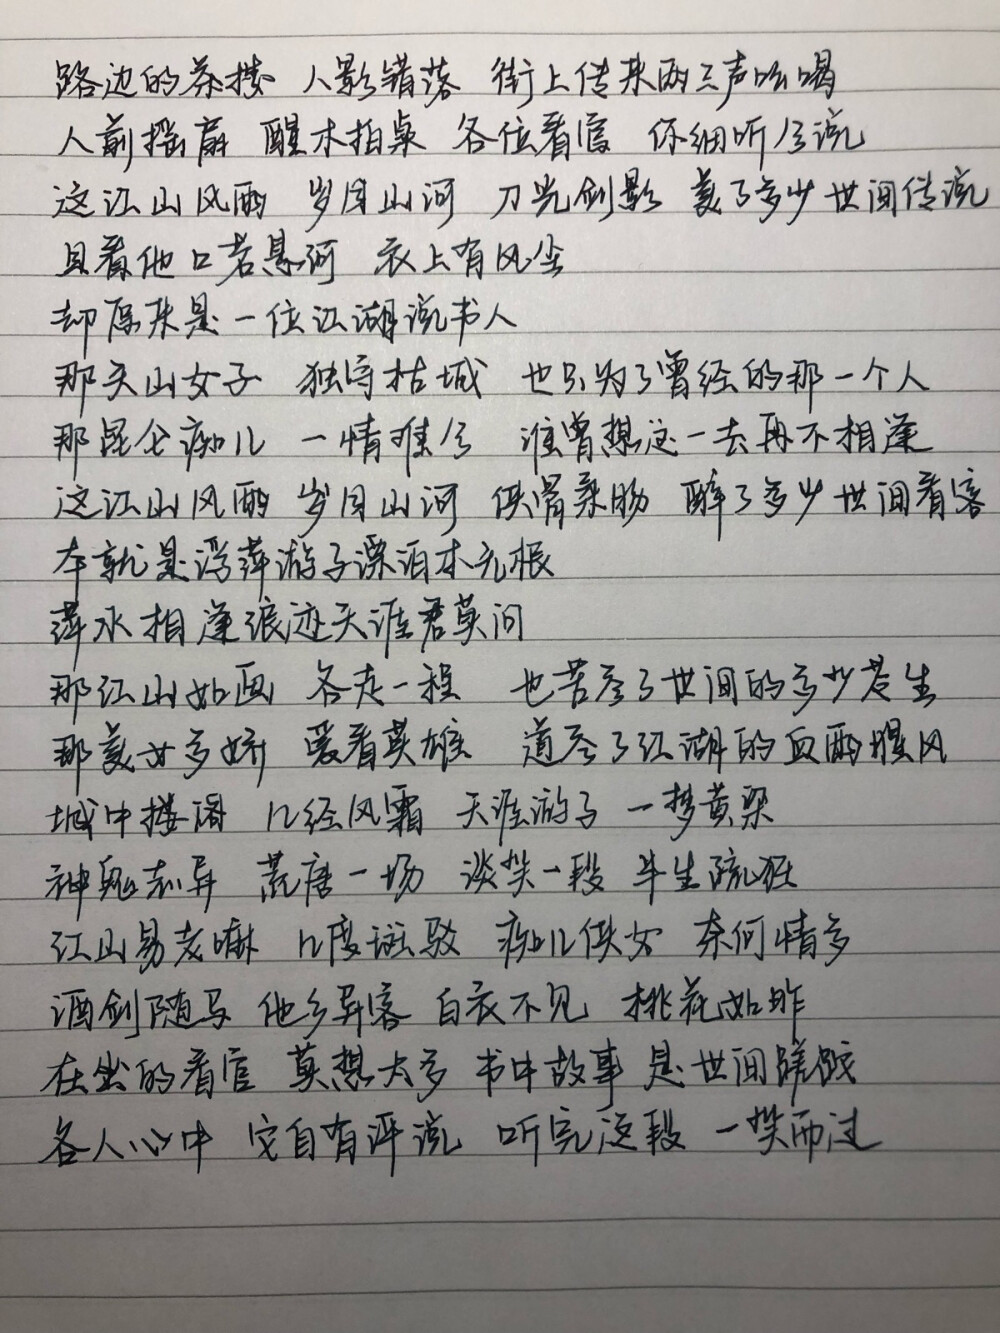 路边的茶楼 人影错落 街上传来两三声吆喝
人前摇扇 醒木拍桌 各位看官 你细听分说
这江山风雨 岁月山河 刀光剑影 美了多少世间传说
且看他口若悬河 衣上有风尘
却原来是一位江湖说书人
那天山女子 独守枯城 也只为了曾经的那一个人
那昆仑痴儿 一情难分 谁曾想这一去再不相逢
这江山风雨 岁月山河 侠骨柔肠 醉了多少世间看客
本就是浮萍游子漂泊本无根
萍水相逢浪迹天涯君莫问
那江山如画 各走一程 也苦尽了世间的多少苍生
那美女多娇 爱看英雄 道尽了江湖的血雨腥风
城中楼阁 几经风霜 天涯游子 一梦黄粱
神鬼志异 荒唐一场 谈笑一段 半生疏狂
江山易老嘛 几度斑驳 痴儿侠女 奈何情多
酒剑随马 他乡异客 白衣不见 桃花如昨
在坐的看官 莫想太多 书中故事 是世间蹉跎
各人心中 它自有评说 听完这段 一笑而过